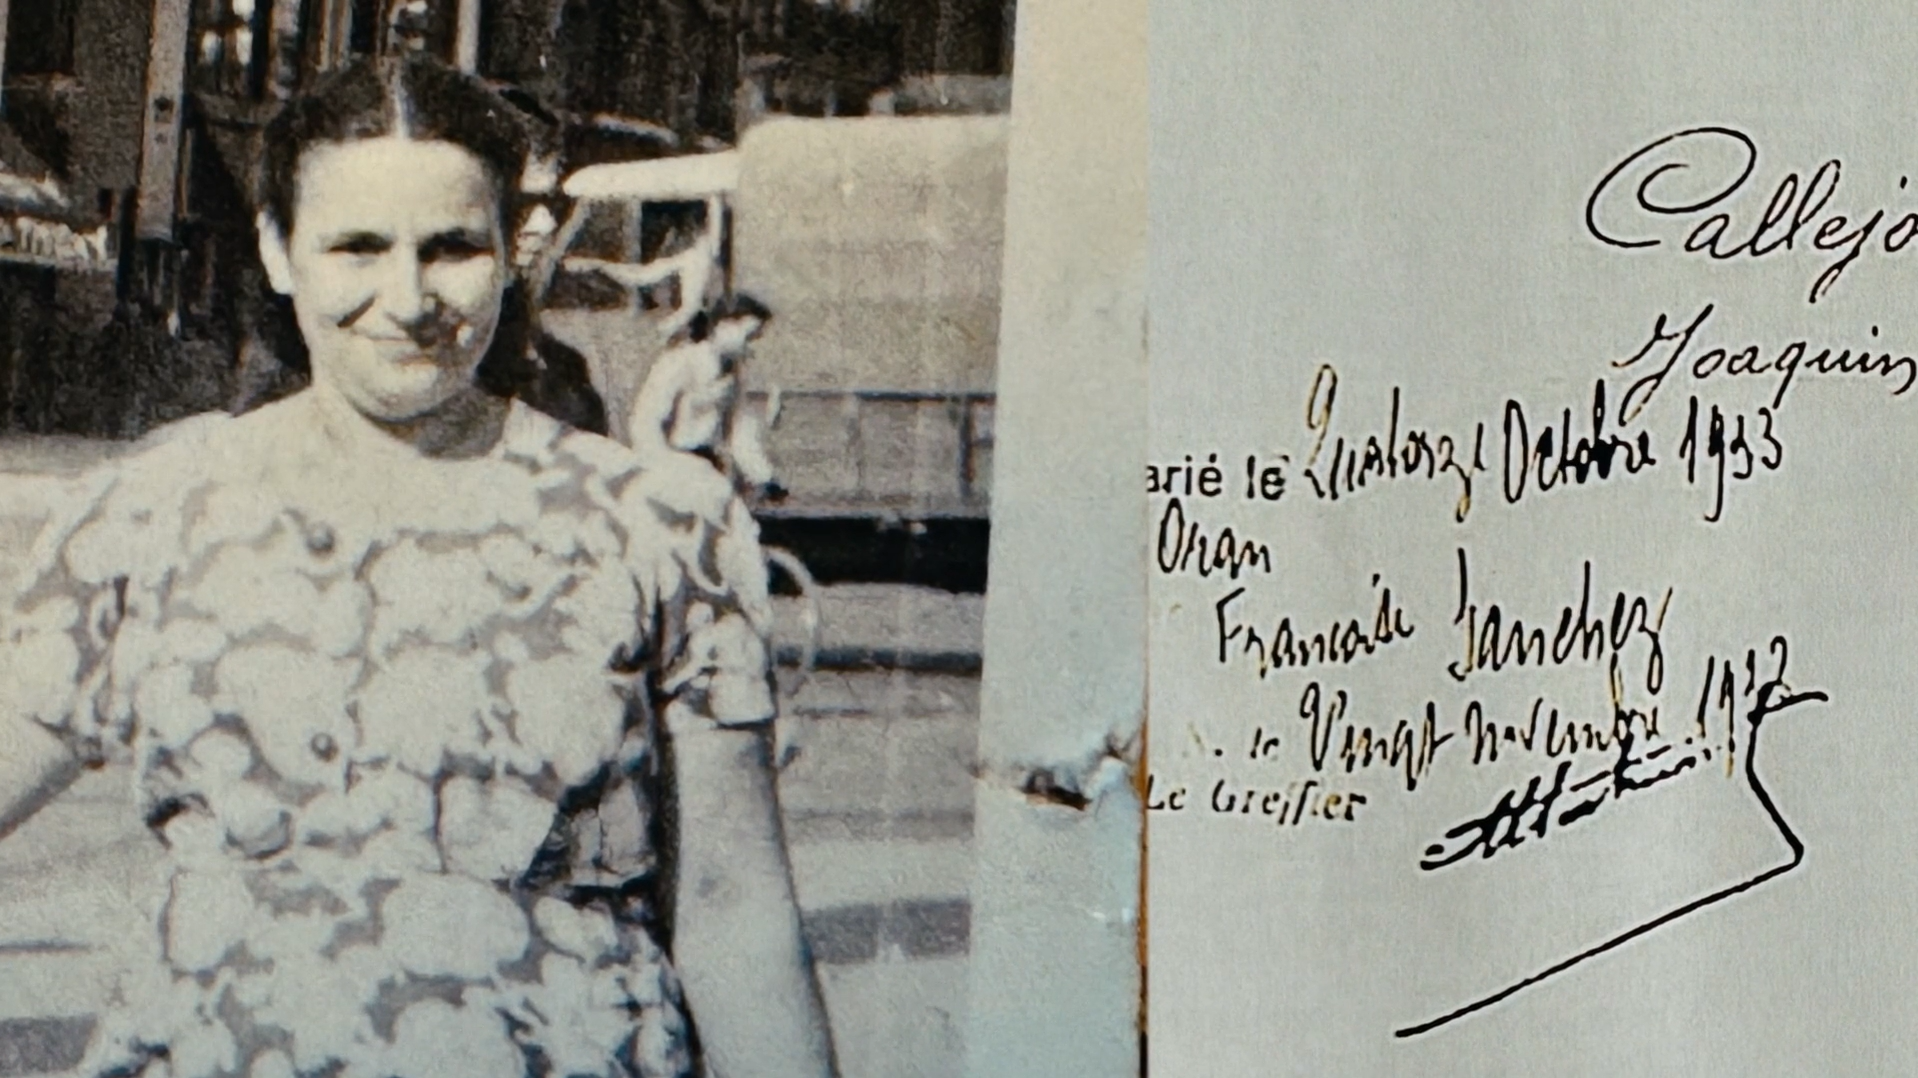 Callejo
Joaquin
arié le Quatorze Octobre 1933
Oran
Francoise Sanchez
le Vingt novembre
Le Greffier